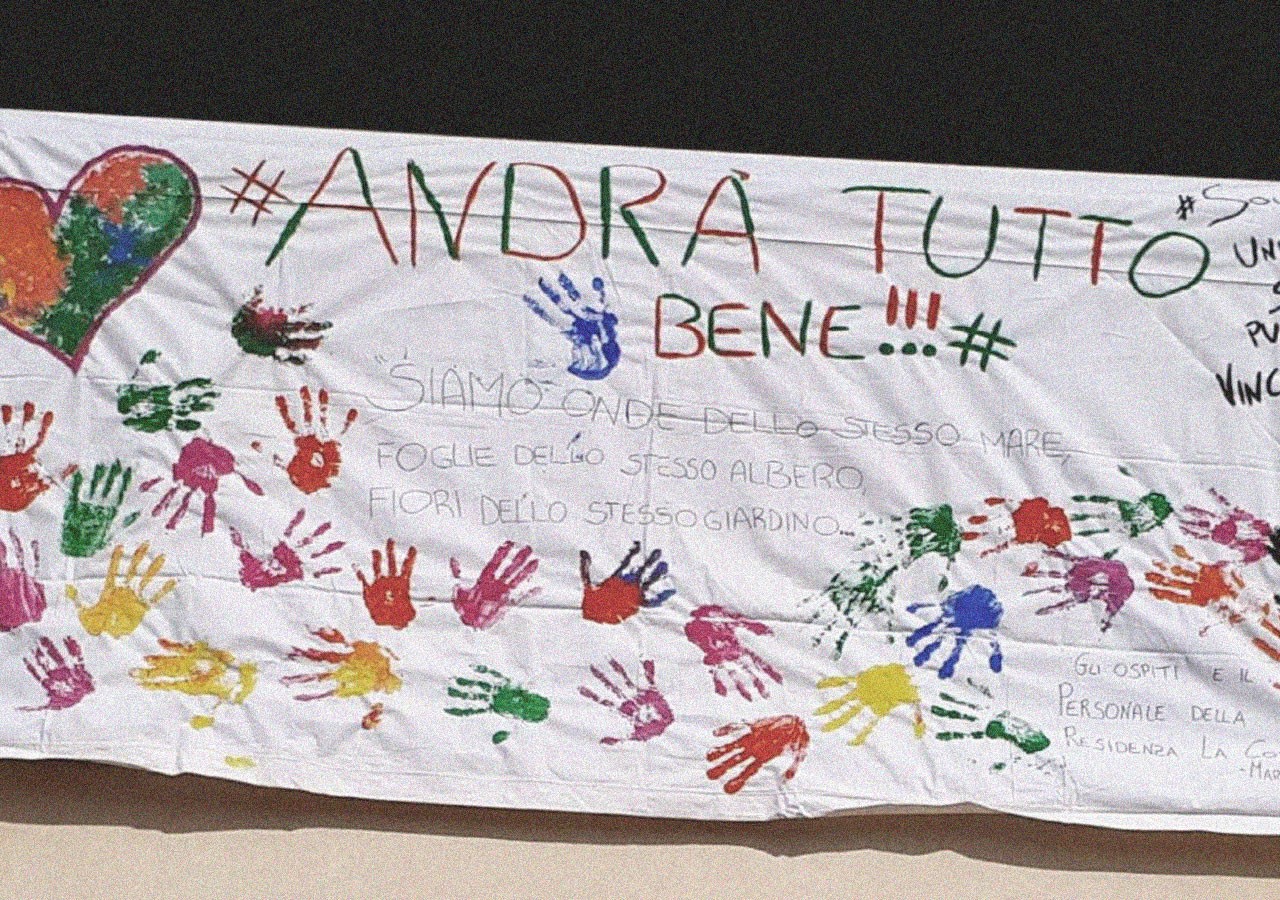 #ANDRÀ TUTTO
BENE!!!#
"SIAMO ONDE DELLO STESSO MARE,
FOGLIE DELLO STESSO ALBERO,
FIORI DELLO STESSO GIARDINO...
GLI OSPITI E IL
PERSONALE DELLA
RESIDENZA LA